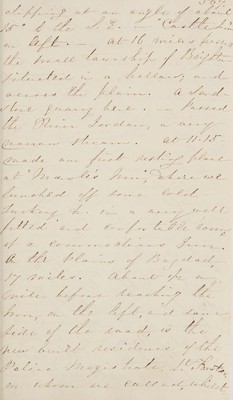 sloping at an angle of about
15° to the S.E. — "Castle Hill"
on left. — at 16 miles pass
the small township of Brighton
situated in a hollow, and
across the plain. A sand-
stone quarry here. — Passed
the River Jordan, a very
narrow stream. At 11.15
made our first resting place
at Inn, where we
lunched off some cold
turkey &c. in a very well
fitted and comfortable room
of a commodious Inn.
On the Plains of Bagdad,
17 miles. About ¼ a
mile before reaching the
Inn, on the left, and same
side of the road, is the
new built residence of the
Police Magistrate,
on whom we called, whilst